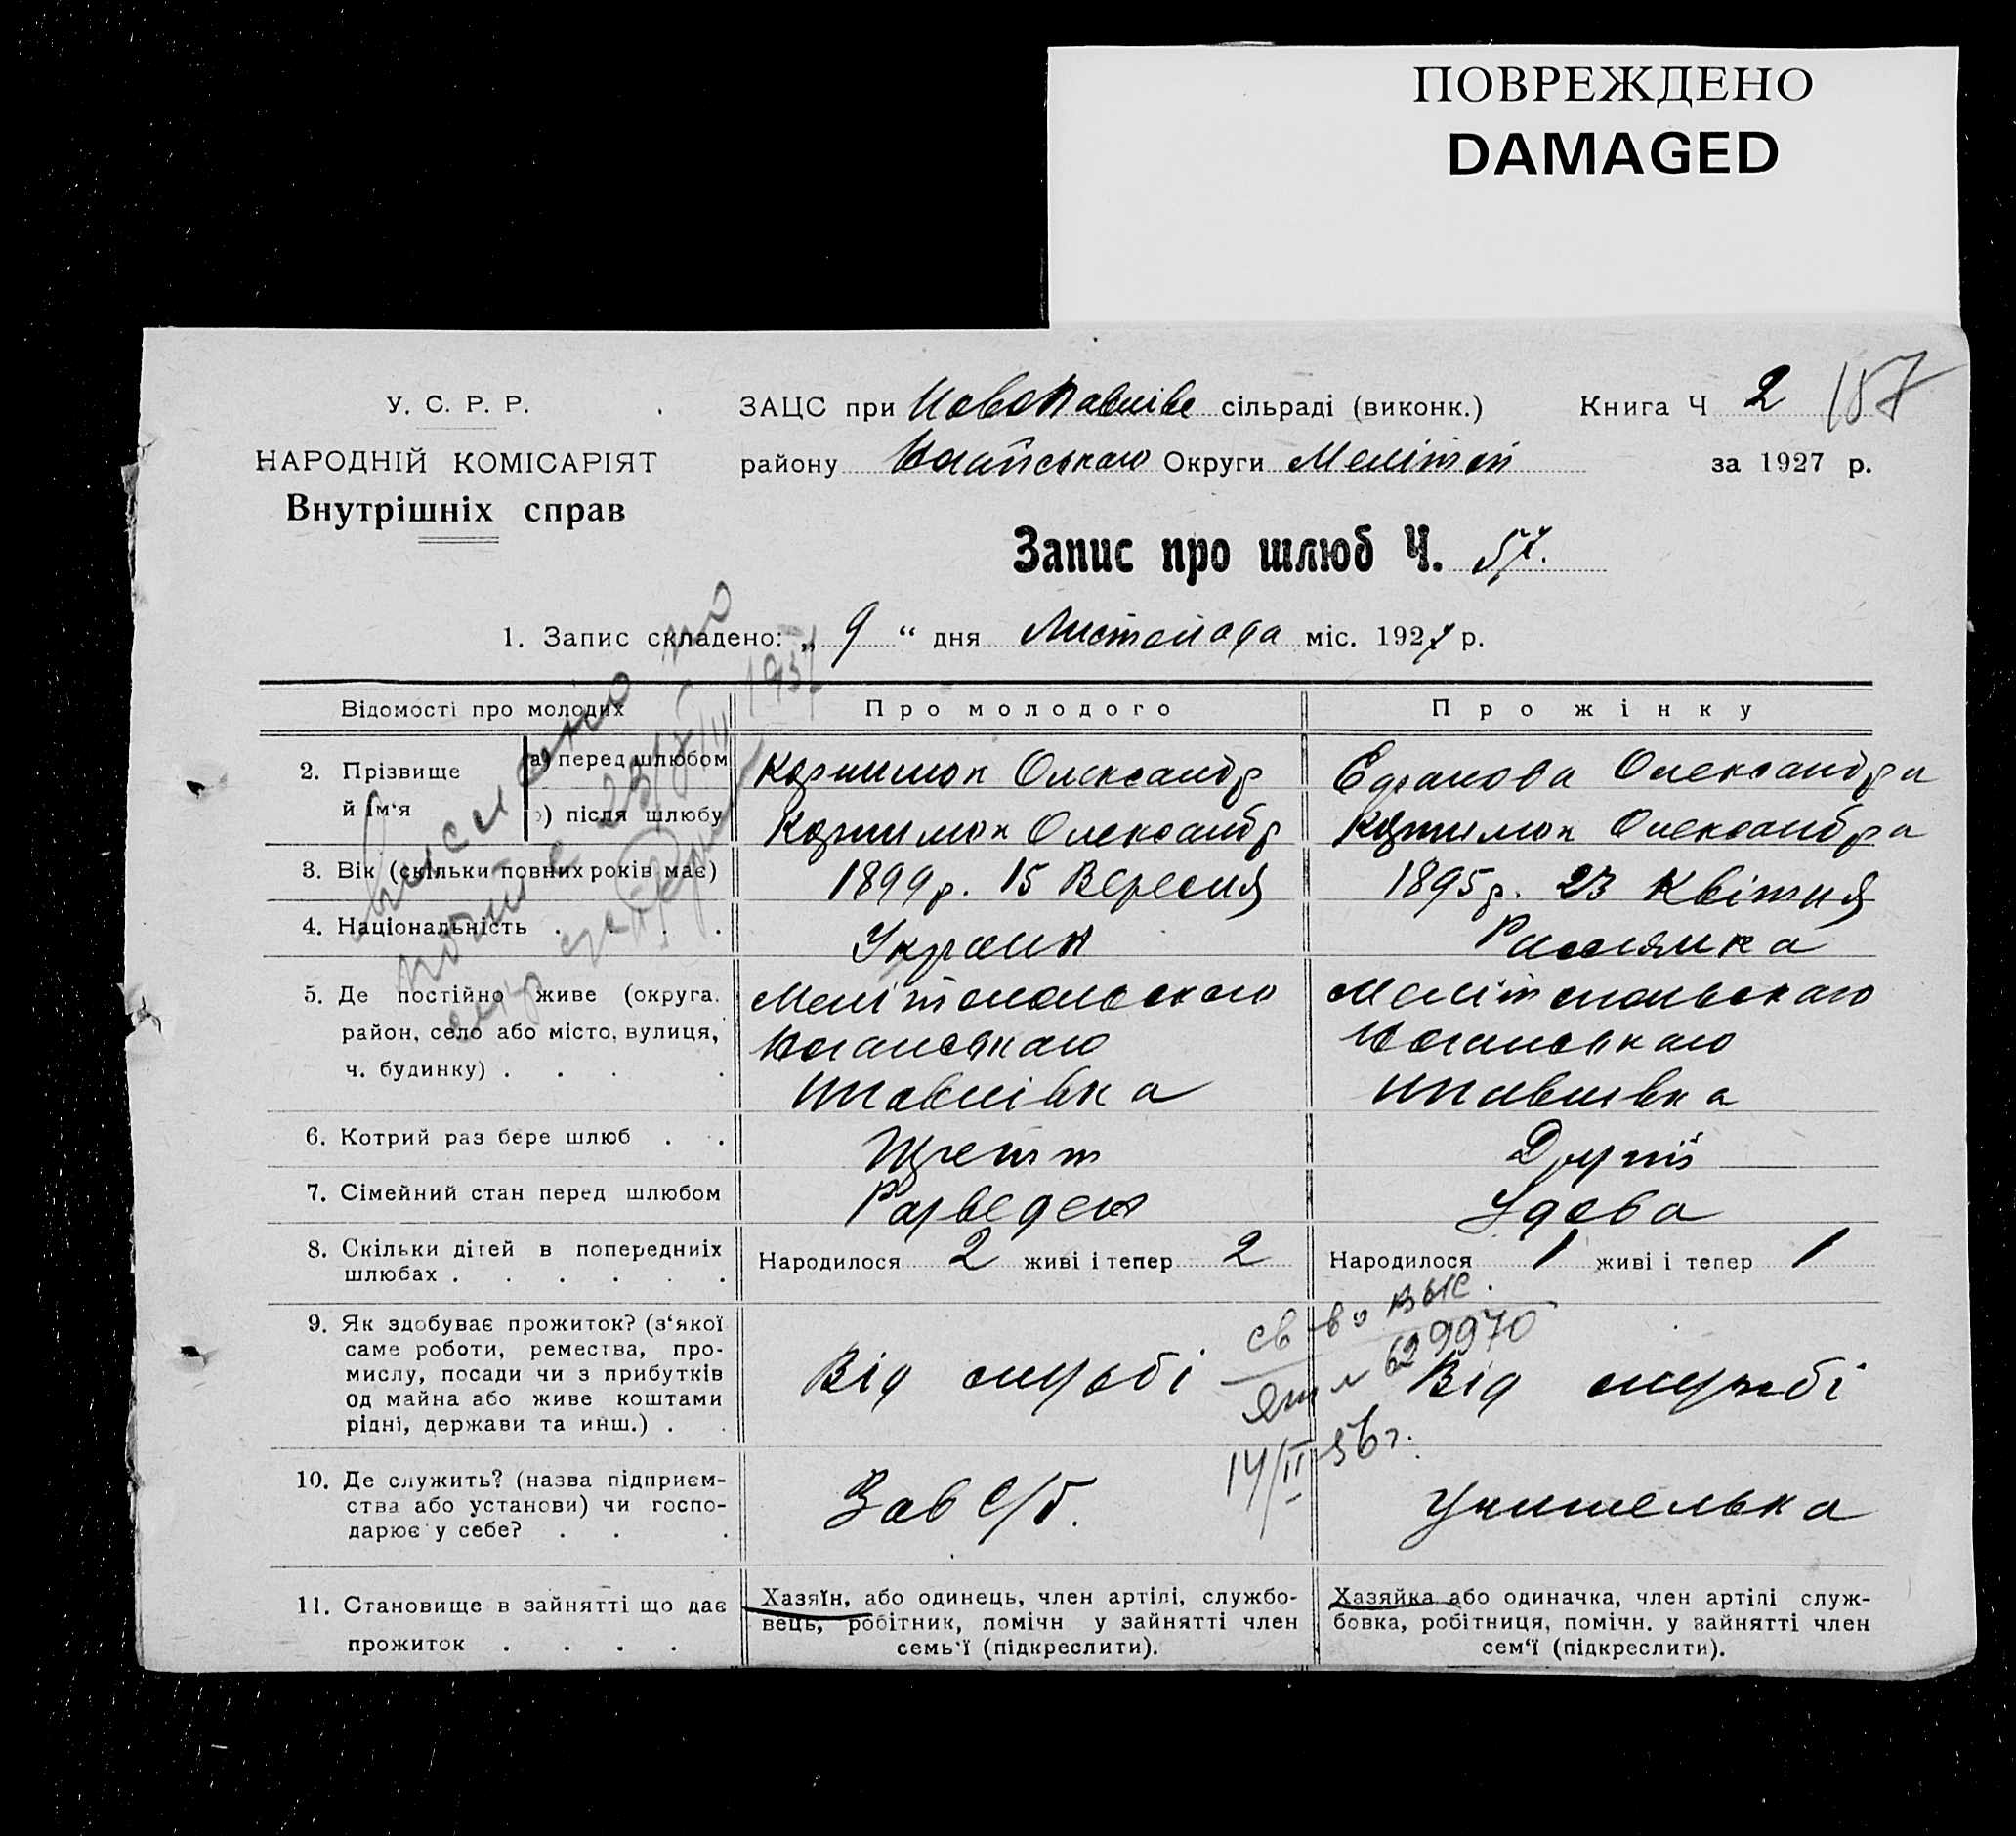 ПОВРЕЖДЕНО
DAMAGED
У. С. Р. Р.
НАРОДНІЙ КОМІСАРІЯТ
Внутрішніх справ
ЗАЦС при НовоПавлівс сільраді (виконк.) Книга Ч 2 157
району Округи Меліт за 1927 р.
Запис про шлюб Ч. 57.
1. Запис складено: „ 9 “ дня Листопада міс. 1927 р.
Відомості про молодих Про молодого Про жінку
2. Прізвище й Ім‘я
а) перед шлюбом Олександр Олександра
б) після шлюбу Олександр Олександра
3. Вік (скільки повних років має) 1899 р. 15 Вересня 1895 р. 23 Квітня
4. Національність . . . . Расиянка
5. Де постійно живе (округа. Мелітопольского Мелітопольского
район, село або місто, вулиця, Ногайського Ногайського
ч. будинку) . . . . НПавлівка НПавлівка
6. Котрий раз бере шлюб . . Другий
7. Сімейний стан перед шлюбом Разведен Удова
8. Скільки дітей в попередниіх Народилося 2 живі і тепер 2 Народилося 1 живі і тепер 1
шлюбах . . . . . .
св-во выс.
№ 629970
14/II-56г.
9. Як здобуває прожиток? (з‘якої
саме роботи, ремества, про-
мислу, посади чи з прибутків Від служби Від служби
од майна або живе коштами
рідні, держави та инш.) . .
10. Де служить? (назва підприєм-
ства або установи) чи госпо- Зав с/б. Учителька
дарює у себе? . . .
11. Становище в зайнятті що дає
прожиток . . . .
Хазяїн, або одинець, член артілі, службо-
вець, робітник, помічн у зайнятті член
семь‘ї (підкреслити).
Хазяйка або одиначка, член артілі служ-
бовка, робітниця, помічн. у зайнятті член
сем‘ї (підкреслити).